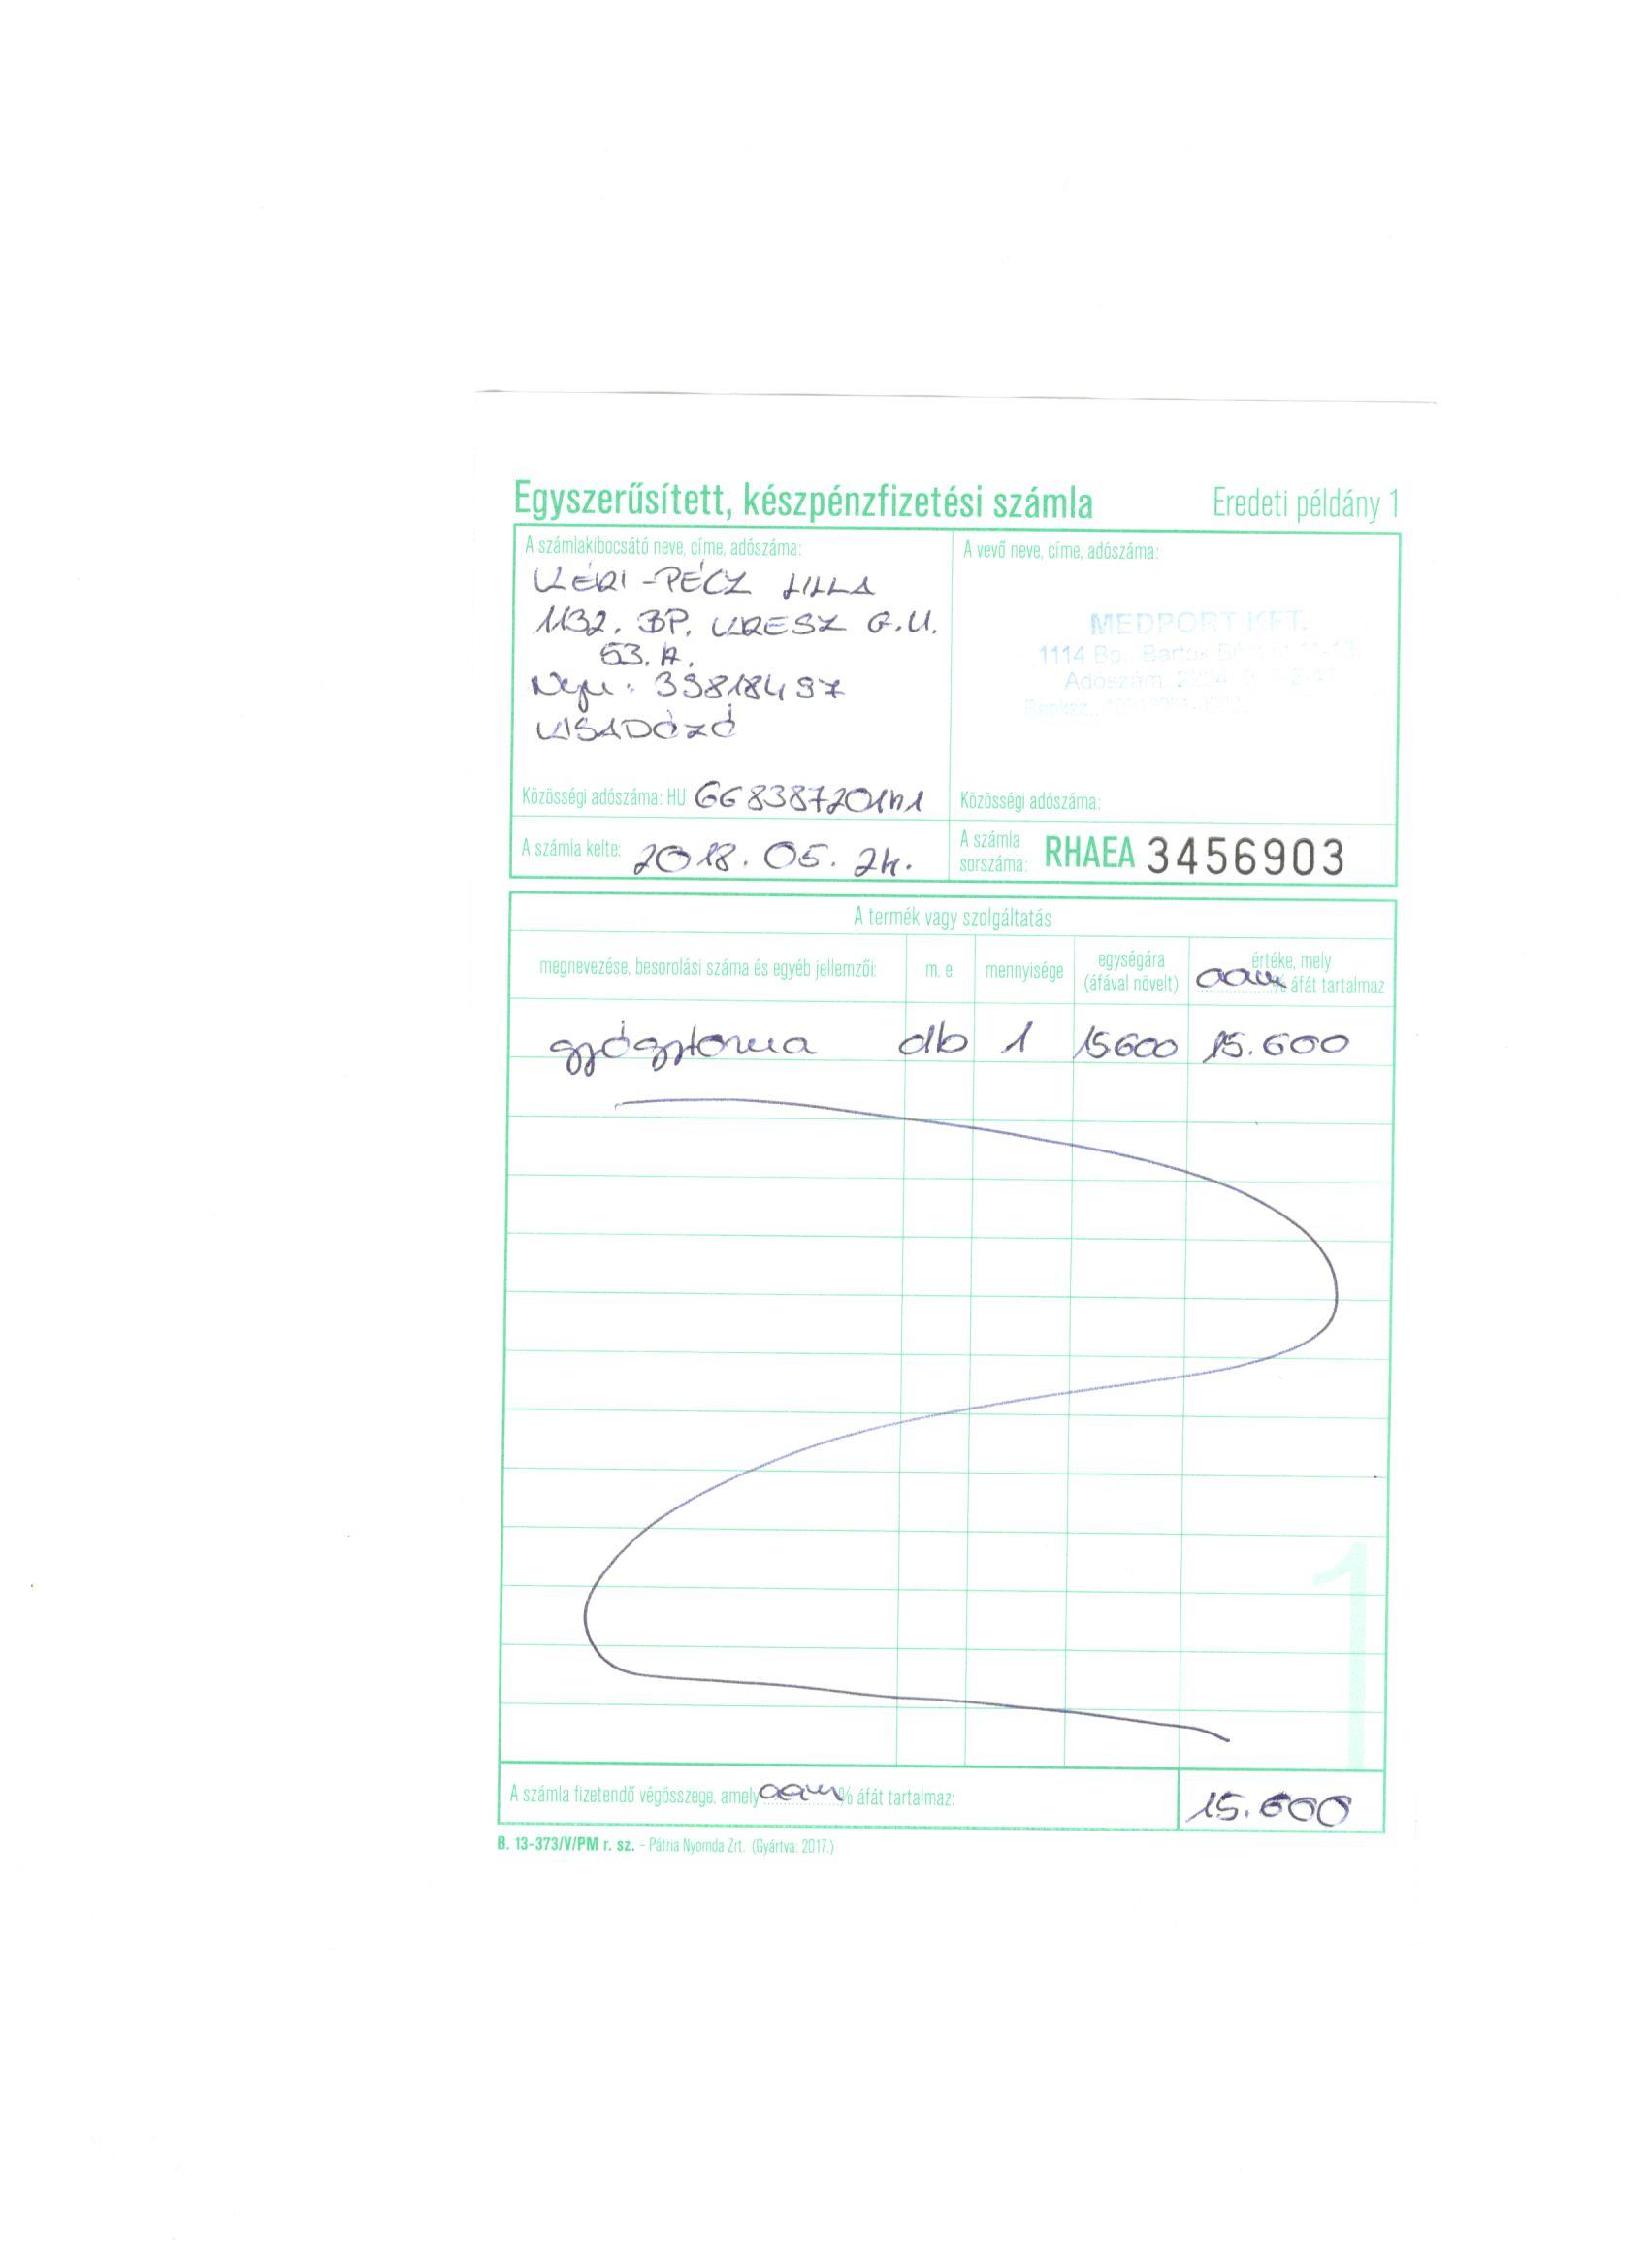 Egyszerűsített, készpénzfizetési számla Eredeti példány 1
A számlakibocsátó neve, címe, adószáma: A vevő neve, címe, adószáma:
KÉRI-PÉCZ LILLA
1132. BP. KRESZ G.U.
53. A.
KISADÓZÓ
MEDPORT KFT.
1114 Bp., Bartók
Adószám:
Közösségi adószáma: HU Közösségi adószáma:
A számla kelte: 2018. 05. 24. A számla sorszáma: RHAEA 3456903
A termék vagy szolgáltatás
megnevezése, besorolási száma és egyéb jellemzői: m. e. mennyisége egységára (áfával növelt) értéke, mely aam % áfát tartalmaz
gyógytorna db 1 15600 15.600
A számla fizetendő végösszege, amely aam % áfát tartalmaz: 15.600
1
B. 13-373/V/PM r. sz. – Pátria Nyomda Zrt. (Gyártva: 2017.)